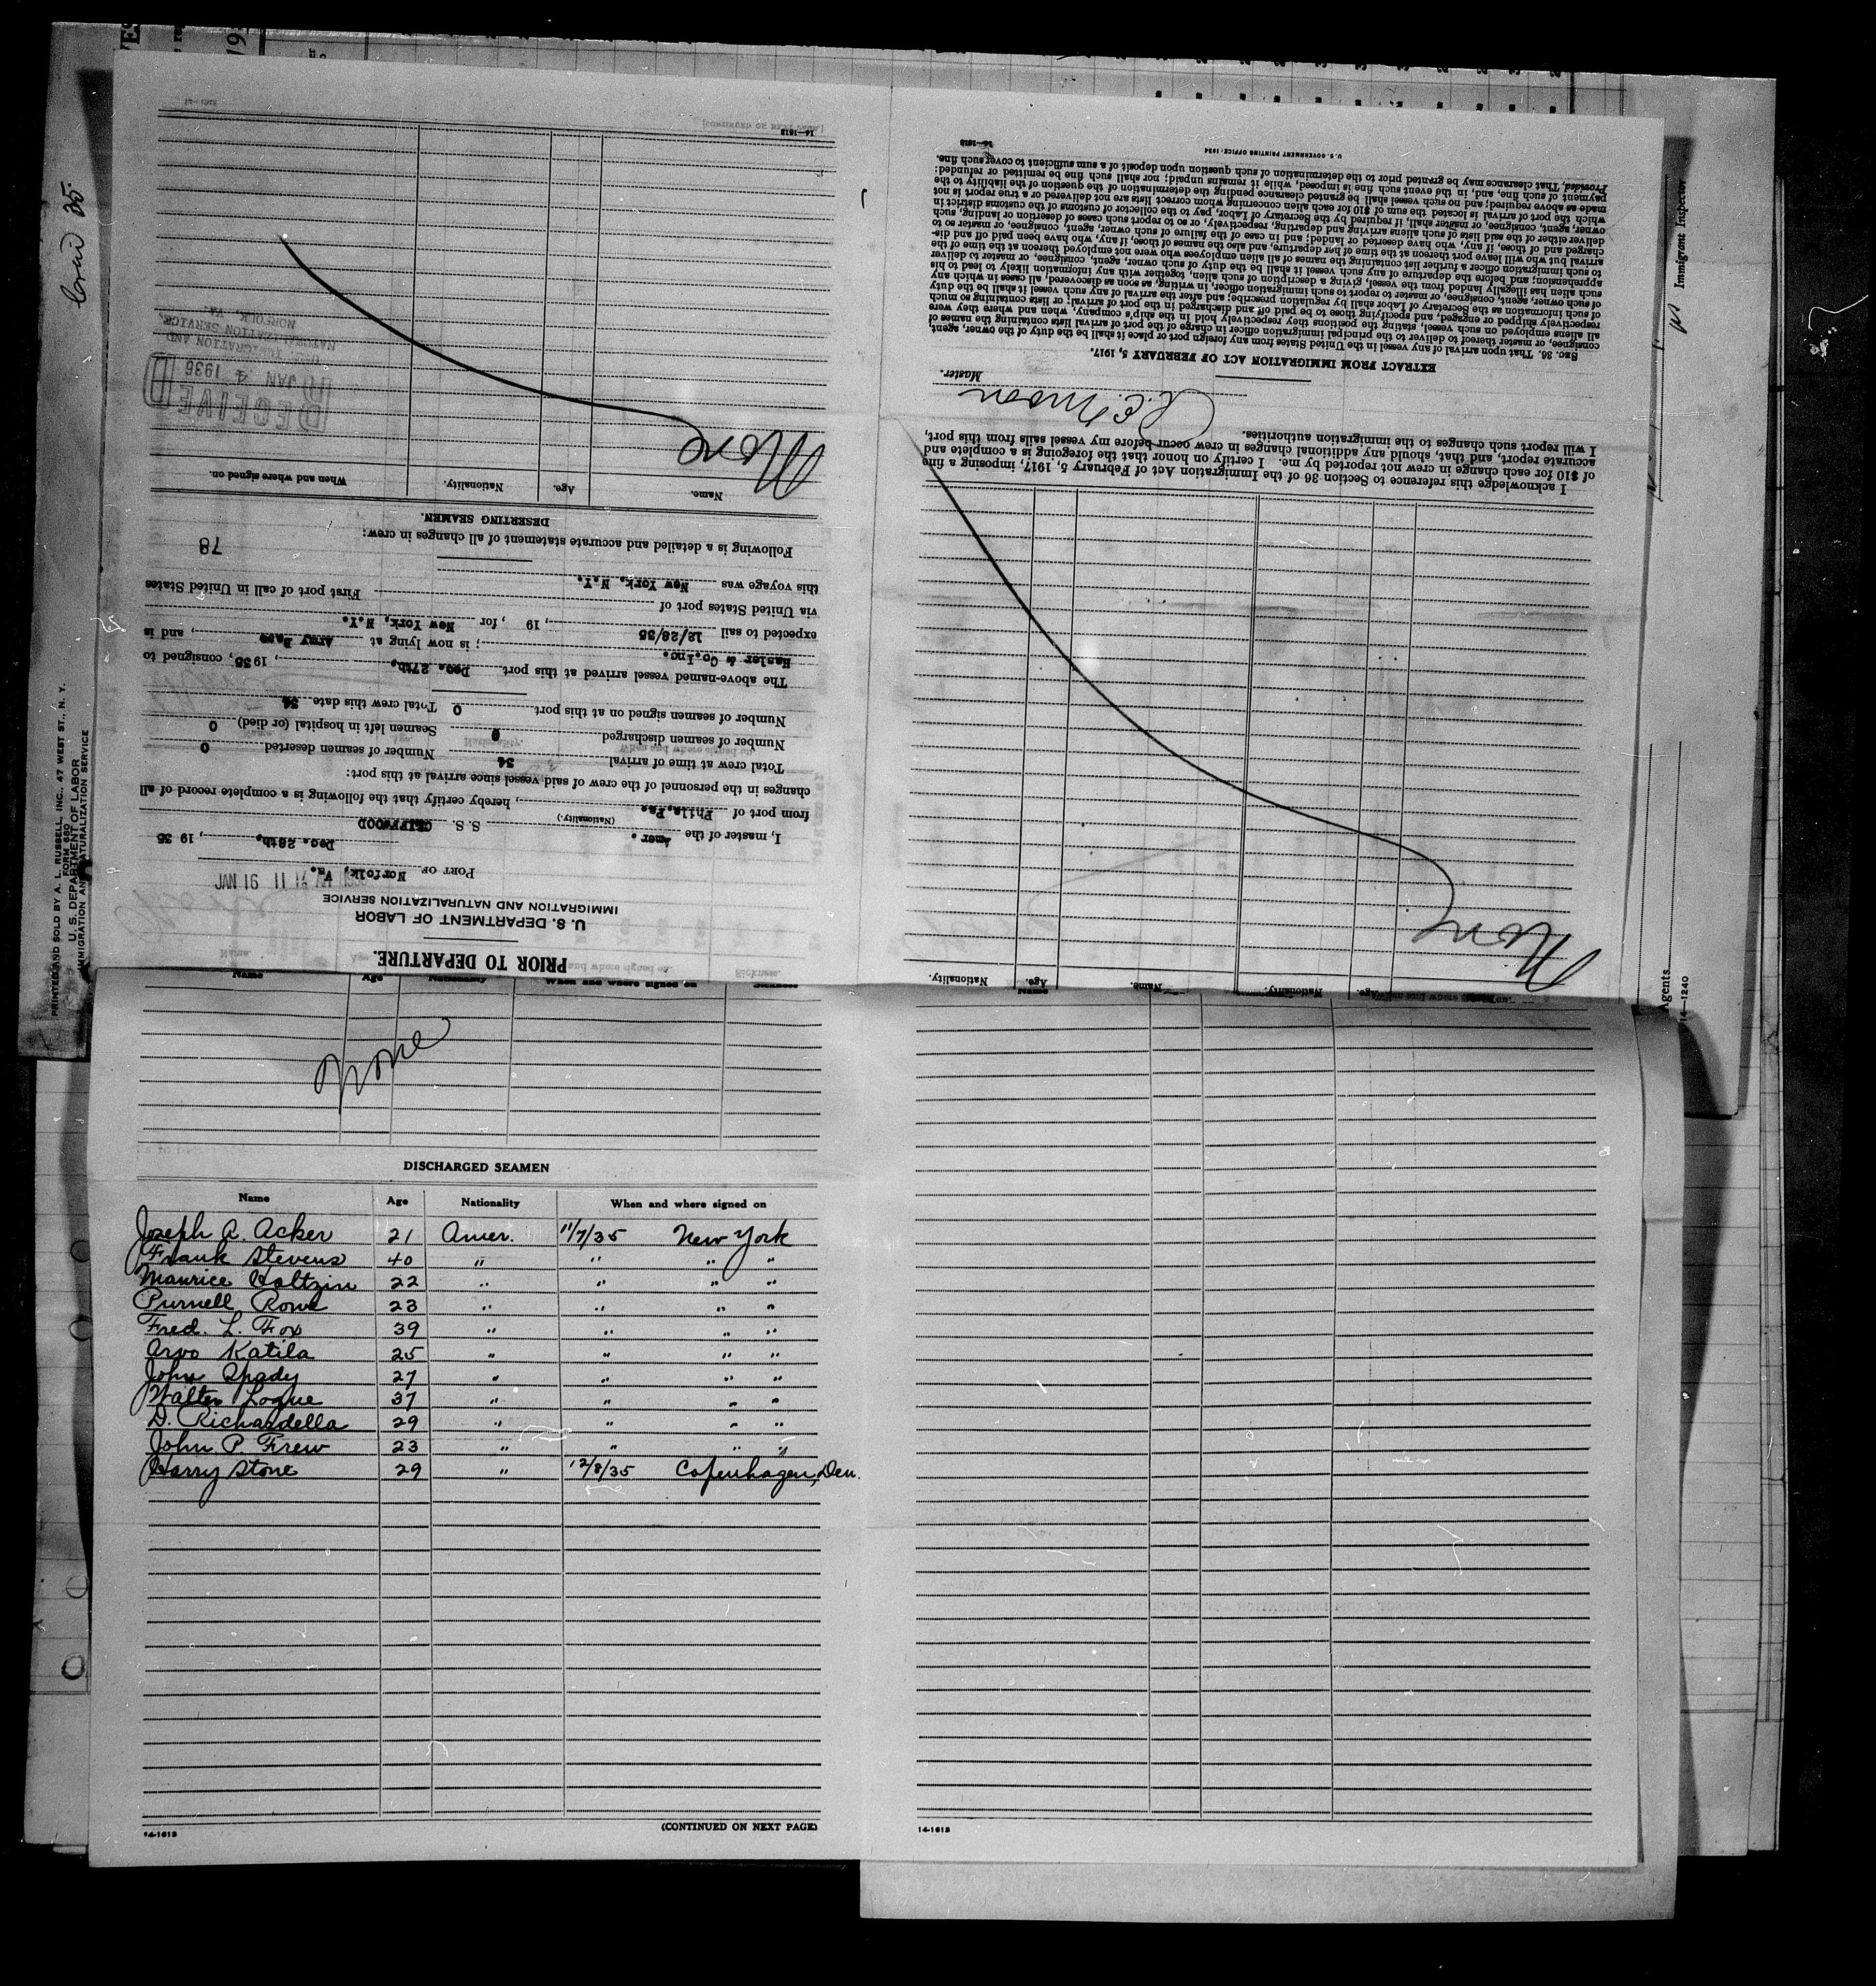 PRIOR TO DEPARTURE.
U. S. DEPARTMENT OF LABOR
IMMIGRATION AND NATURALIZATION SERVICE
PORT OF Norfolk, Va.
Dec. 28th, , 19 35
I, master of the Amer. S. S. CLIFFWOOD
(Nationality.)
from port of Phila, Pa. , hereby certify that the following is a complete record of all
changes in the personnel of the crew of said vessel since arrival at this port:
Total crew at time of arrival 34 Number of seamen deserted 0
Number of seamen discharged 0 Seamen left in hospital (or died) 0
Number of seamen signed on at this port. 0 Total crew this date. 34
The above-named vessel arrived at this port Dec. 27th, , 1935, consigned to
Hasler & Co. Inc. ; is now lying at Army Base , and is
expected to sail 12/28/35 , 19 , for New York, N.Y.
via United States port of First port of call in United States
this voyage was New York, N.Y.
Following is a detailed and accurate statement of all changes in crew:
78
DESERTING SEAMEN.
Name. Age. Nationality. When and where signed on.
None
RECEIVED
JAN 4 1936
IMMIGRATION AND
NATURALIZATION SERVICE,
NORFOLK, VA.
14—1613
Name. Age. Nationality. Name. Age. Nationality.
None
I acknowledge this reference to Section 36 of the Immigration Act of February 5, 1917, imposing a fine
of $10 for each change in crew not reported by me. I certify on honor that the foregoing is a complete and
accurate report, and that, should any additional changes in crew occur before my vessel sails from this port,
I will report such changes to the immigration authorities.
Master.
EXTRACT FROM IMMIGRATION ACT OF FEBRUARY 5, 1917.
SEC. 36. That upon arrival of any vessel in the United States from any foreign port or place it shall be the duty of the owner, agent,
consignee, or master thereof to deliver to the principal immigration officer in charge of the port of arrival lists containing the names of
all aliens employed on such vessel, stating the positions they respectively hold in the ship's company, when and where they were
respectively shipped or engaged, and specifying those to be paid off and discharged in the port of arrival; or lists containing so much
of such information as the Secretary of Labor shall by regulation prescribe; and after the arrival of any such vessel it shall be the duty
of such owner, agent, consignee, or master to report to such immigration officer, in writing, as soon as discovered, all cases in which any
such alien has illegally landed from the vessel, giving a description of such alien, together with any information likely to lead to his
apprehension; and before the departure of any such vessel it shall be the duty of such owner, agent, consignee, or master to deliver
to such immigration officer a further list containing the names of all alien employees who were not employed thereon at the time of the
arrival but who will leave port thereon at the time of her departure, and also the names of those, if any, who have been paid off and dis-
charged and of those, if any, who have deserted or landed; and in case of the failure of such owner, agent, consignee, or master so to
deliver either of the said lists of such aliens arriving and departing, respectively, or so to report such cases of desertion or landing, such
owner, agent, consignee, or master shall, if required by the Secretary of Labor, pay to the collector of customs of the customs district in
which the port of arrival is located the sum of $10 for each alien concerning whom correct lists are not delivered or a true report is not
made as above required; and no such vessel shall be granted clearance pending the determination of the question of the liability to the
payment of such fine, and, in the event such fine is imposed, while it remains unpaid; nor shall such fine be remitted or refunded:
Provided, That clearance may be granted prior to the determination of such question upon deposit of a sum sufficient to cover such fine.
U. S. GOVERNMENT PRINTING OFFICE: 1934
14—1613
PRINTED AND SOLD BY A. L. RUSSELL, INC., 47 WEST ST., N. Y.
FORM 680
U. S. DEPARTMENT OF LABOR
IMMIGRATION AND NATURALIZATION SERVICE
35
Immigrant Inspector
Agents
14—1240
Name Age Nationality When and where signed on Sickness
None
DISCHARGED SEAMEN
Name Age Nationality When and where signed on
Joseph A. Acker 21 Amer. 11/7/35 New York
Frank Stevens 40 " " " "
Maurice Holtzin 22 " " " "
Purnell Rowe 23 " " " "
Fred. L. Fox 39 " " " "
Arvo Katila 25 " " " "
John Spady 27 " " " "
Walter Logue 37 " " " "
D. Richardella 29 " " " "
John P. Frew 23 " " " "
Harry Stone 29 " 12/8/35 Copenhagen, Den.
14-1613
(CONTINUED ON NEXT PAGE)
14-1613